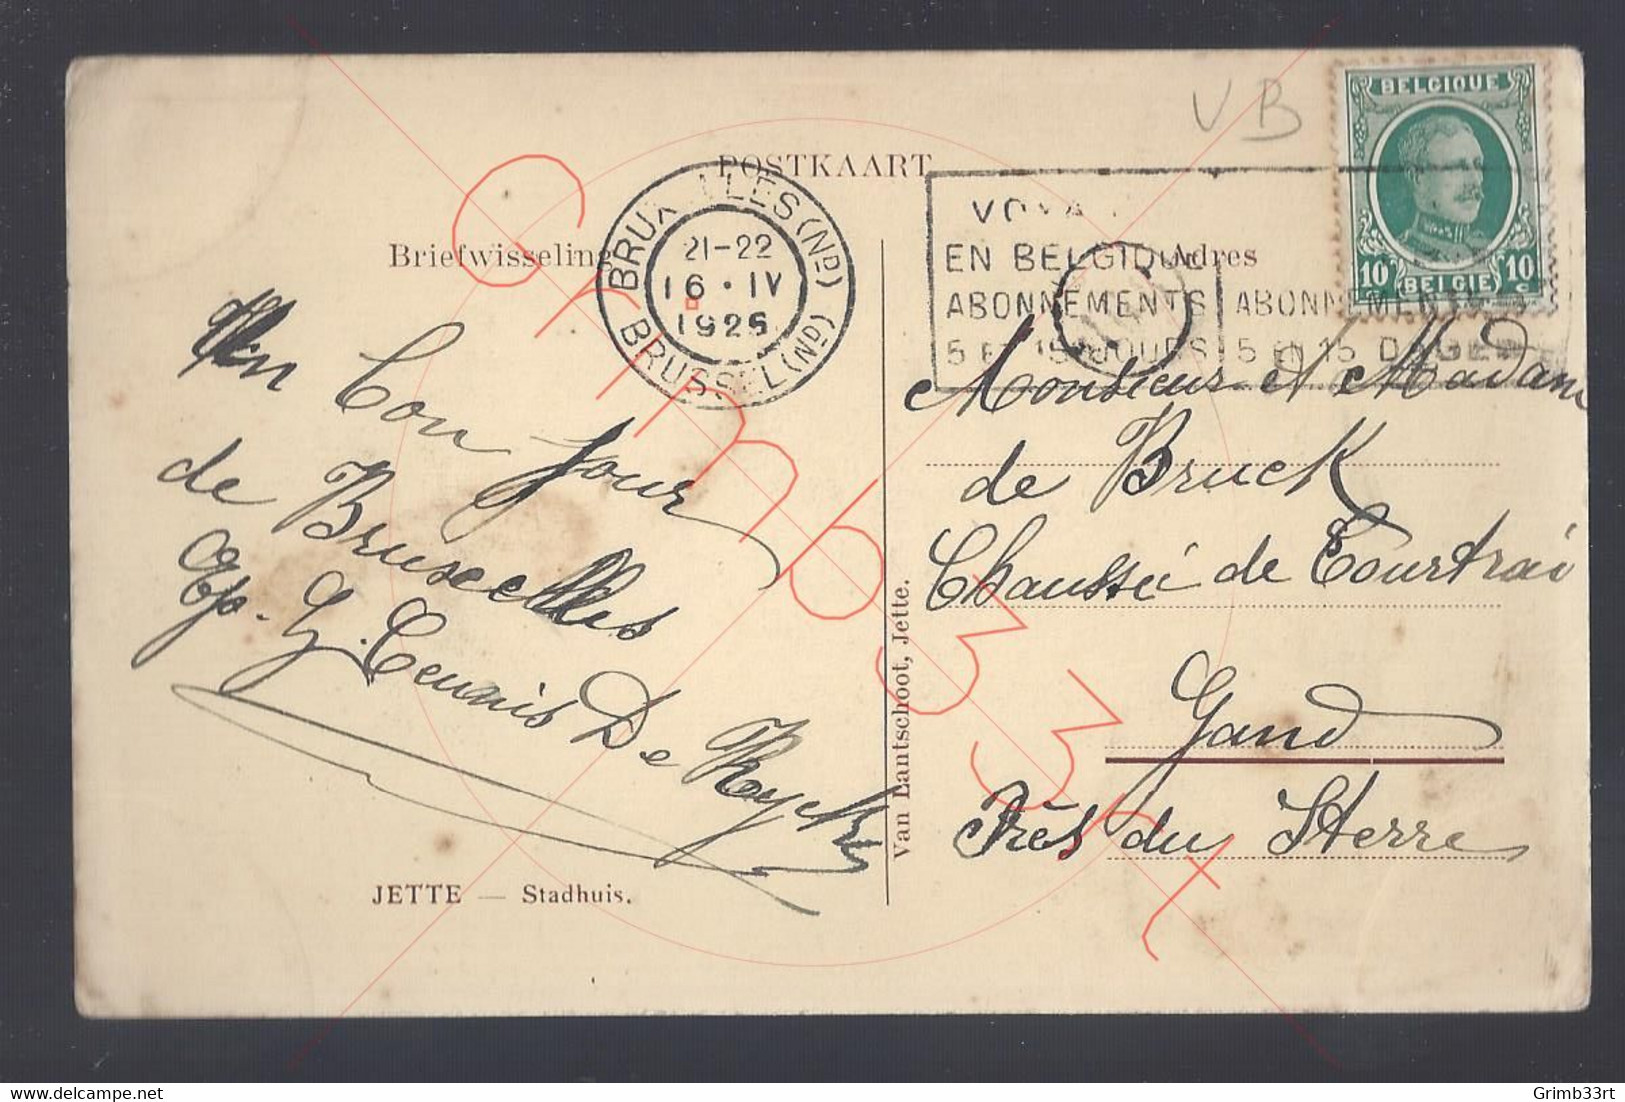 V B
BELGIQUE
10 BELGIE 10
c c
POSTKAART
Briefwisseling
Adres
BRUXELLES (ND)
21-22
16 · IV
1925
BRUSSEL (ND)
EN BELGIQUE
ABONNEMENTS ABONNEMENTEN
5 ET 15 JOURS 5 EN 15 DAGEN
Un bon jour
de Bruxelles
De Ryck
Monsieur et Madame
de Bruck
Chaussée de Courtrai
Gand
Près du Sterre
Van Lantschoot, Jette.
JETTE — Stadhuis.
Grimb33rt
delcampe.net
Grimb33rt